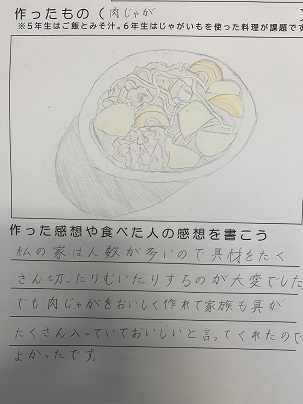 作ったもの（肉じゃが
※５年生はご飯とみそ汁。６年生はじゃがいもを使った料理が課題です
作った感想や食べた人の感想を書こう
私の家は人数が多いので具材をたく
さん切ったりむいたりするのが大変でした
でも肉じゃがをおいしく作れて家族も具が
たくさん入っていておいしいと言ってくれたので
よかったです。